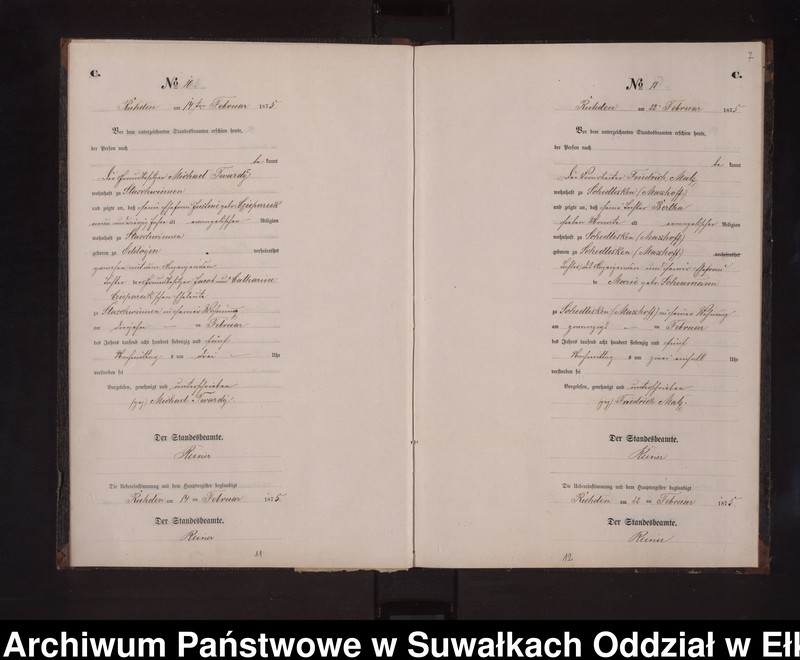 C.
No 10
Richden am 14ten Februar 1875
Vor dem unterzeichneten Standesbeamten erschien heute,
der Person nach
be kannt
Der Grundbesitzer Michael Twardÿ
wohnhaft zu Staschwinnen
und zeigte an, daß seine Ehefrau geb.
alt evangelischer Religion
wohnhaft zu Staschwinnen
geboren zu verheirathet
gewesen mit dem Anzeigenden
Tochter der Grundbesitzer Jacob und Catharine
Eheleute
zu Staschwinnen in seiner Wohnung
am Februar
des Jahres tausend acht hundert siebenzig und fünf
Nachmittag s um drei Uhr
verstorben sei
Vorgelesen, genehmigt und unterschrieben
gez) Michael Twardÿ.
Der Standesbeamte.
Reiner
Die Uebereinstimmung mit dem Hauptregister beglaubigt
Richden am 14 ten Februar 1875.
Der Standesbeamte.
Reiner
11
7
C.
No 11
Richden am 22 Februar 1875
Vor dem unterzeichneten Standesbeamten erschien heute,
der Person nach
be kannt
Der Friedrich Matz
wohnhaft zu Schedlisken (Marxhoff)
und zeigte an, daß seine Tochter Bertha
sieben Monate alt evangelischer Religion
wohnhaft zu Schedlisken (Marxhoff)
geboren zu Schedlisken (Marxhoff) verheirathet
Tochter des Anzeigenden und seiner Ehefrau
Marie geb. Scheumann
zu Schedlisken (Marxhoff) in seiner Wohnung
am zwanzigst ten Februar
des Jahres tausend acht hundert siebenzig und fünf
Nachmittag s um zwei einhalb Uhr
verstorben sei
Vorgelesen, genehmigt und unterschrieben
gez) Friedrich Matz.
Der Standesbeamte.
Reiner
Die Uebereinstimmung mit dem Hauptregister beglaubigt
Richden am 22 ten Februar 1875.
Der Standesbeamte.
Reiner
12
Archiwum Państwowe w Suwałkach Oddział w Ełk